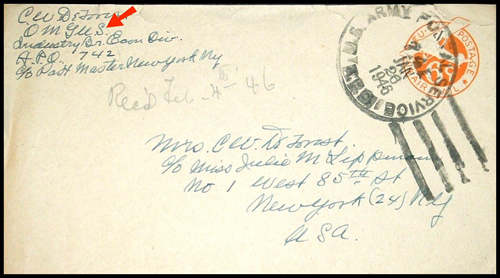 C.W. DeForest
O M G U S.
Industry Br. Econ Div.
A.P.O. 742
c/o Post Master New York Ny
Rec'd Feb - 4 - 46
U.S. ARMY POSTAL SERVICE
JAN
26
1946
POSTAGE
AIR MAIL
Mrs. C W DeForest.
c/o Miss Julie M Lippmann
No. 1 West 85th St
New York (24) Ny
USA.